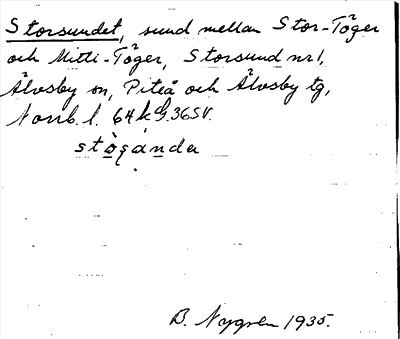 Storsundet, sund mellan Stor-Töger
och Mitti-Töger, Storsund nr 1,
Älvsby sn, Piteå och Älvsby tg,
Norrb. l. 64 k d 9.36 SV.
B. Nygren 1935.